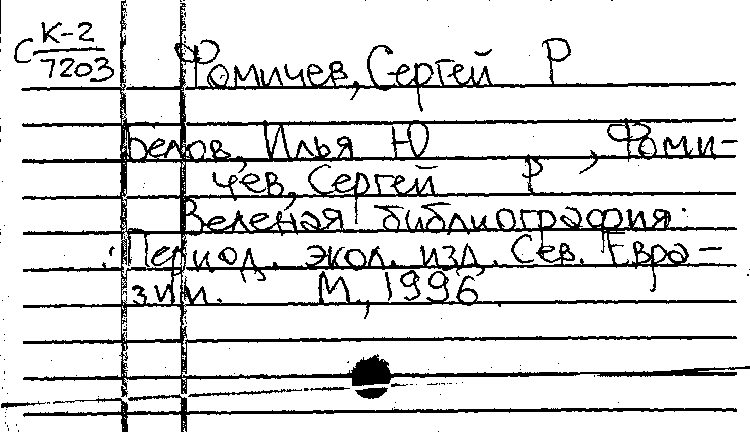 С К-2
7203
Фомичев, Сергей Р
Белов, Илья Ю , Фоми-
чев, Сергей Р
Зеленая библиография:
: Период. экол. изд. Сев. Евра-
зии. М., 1996.